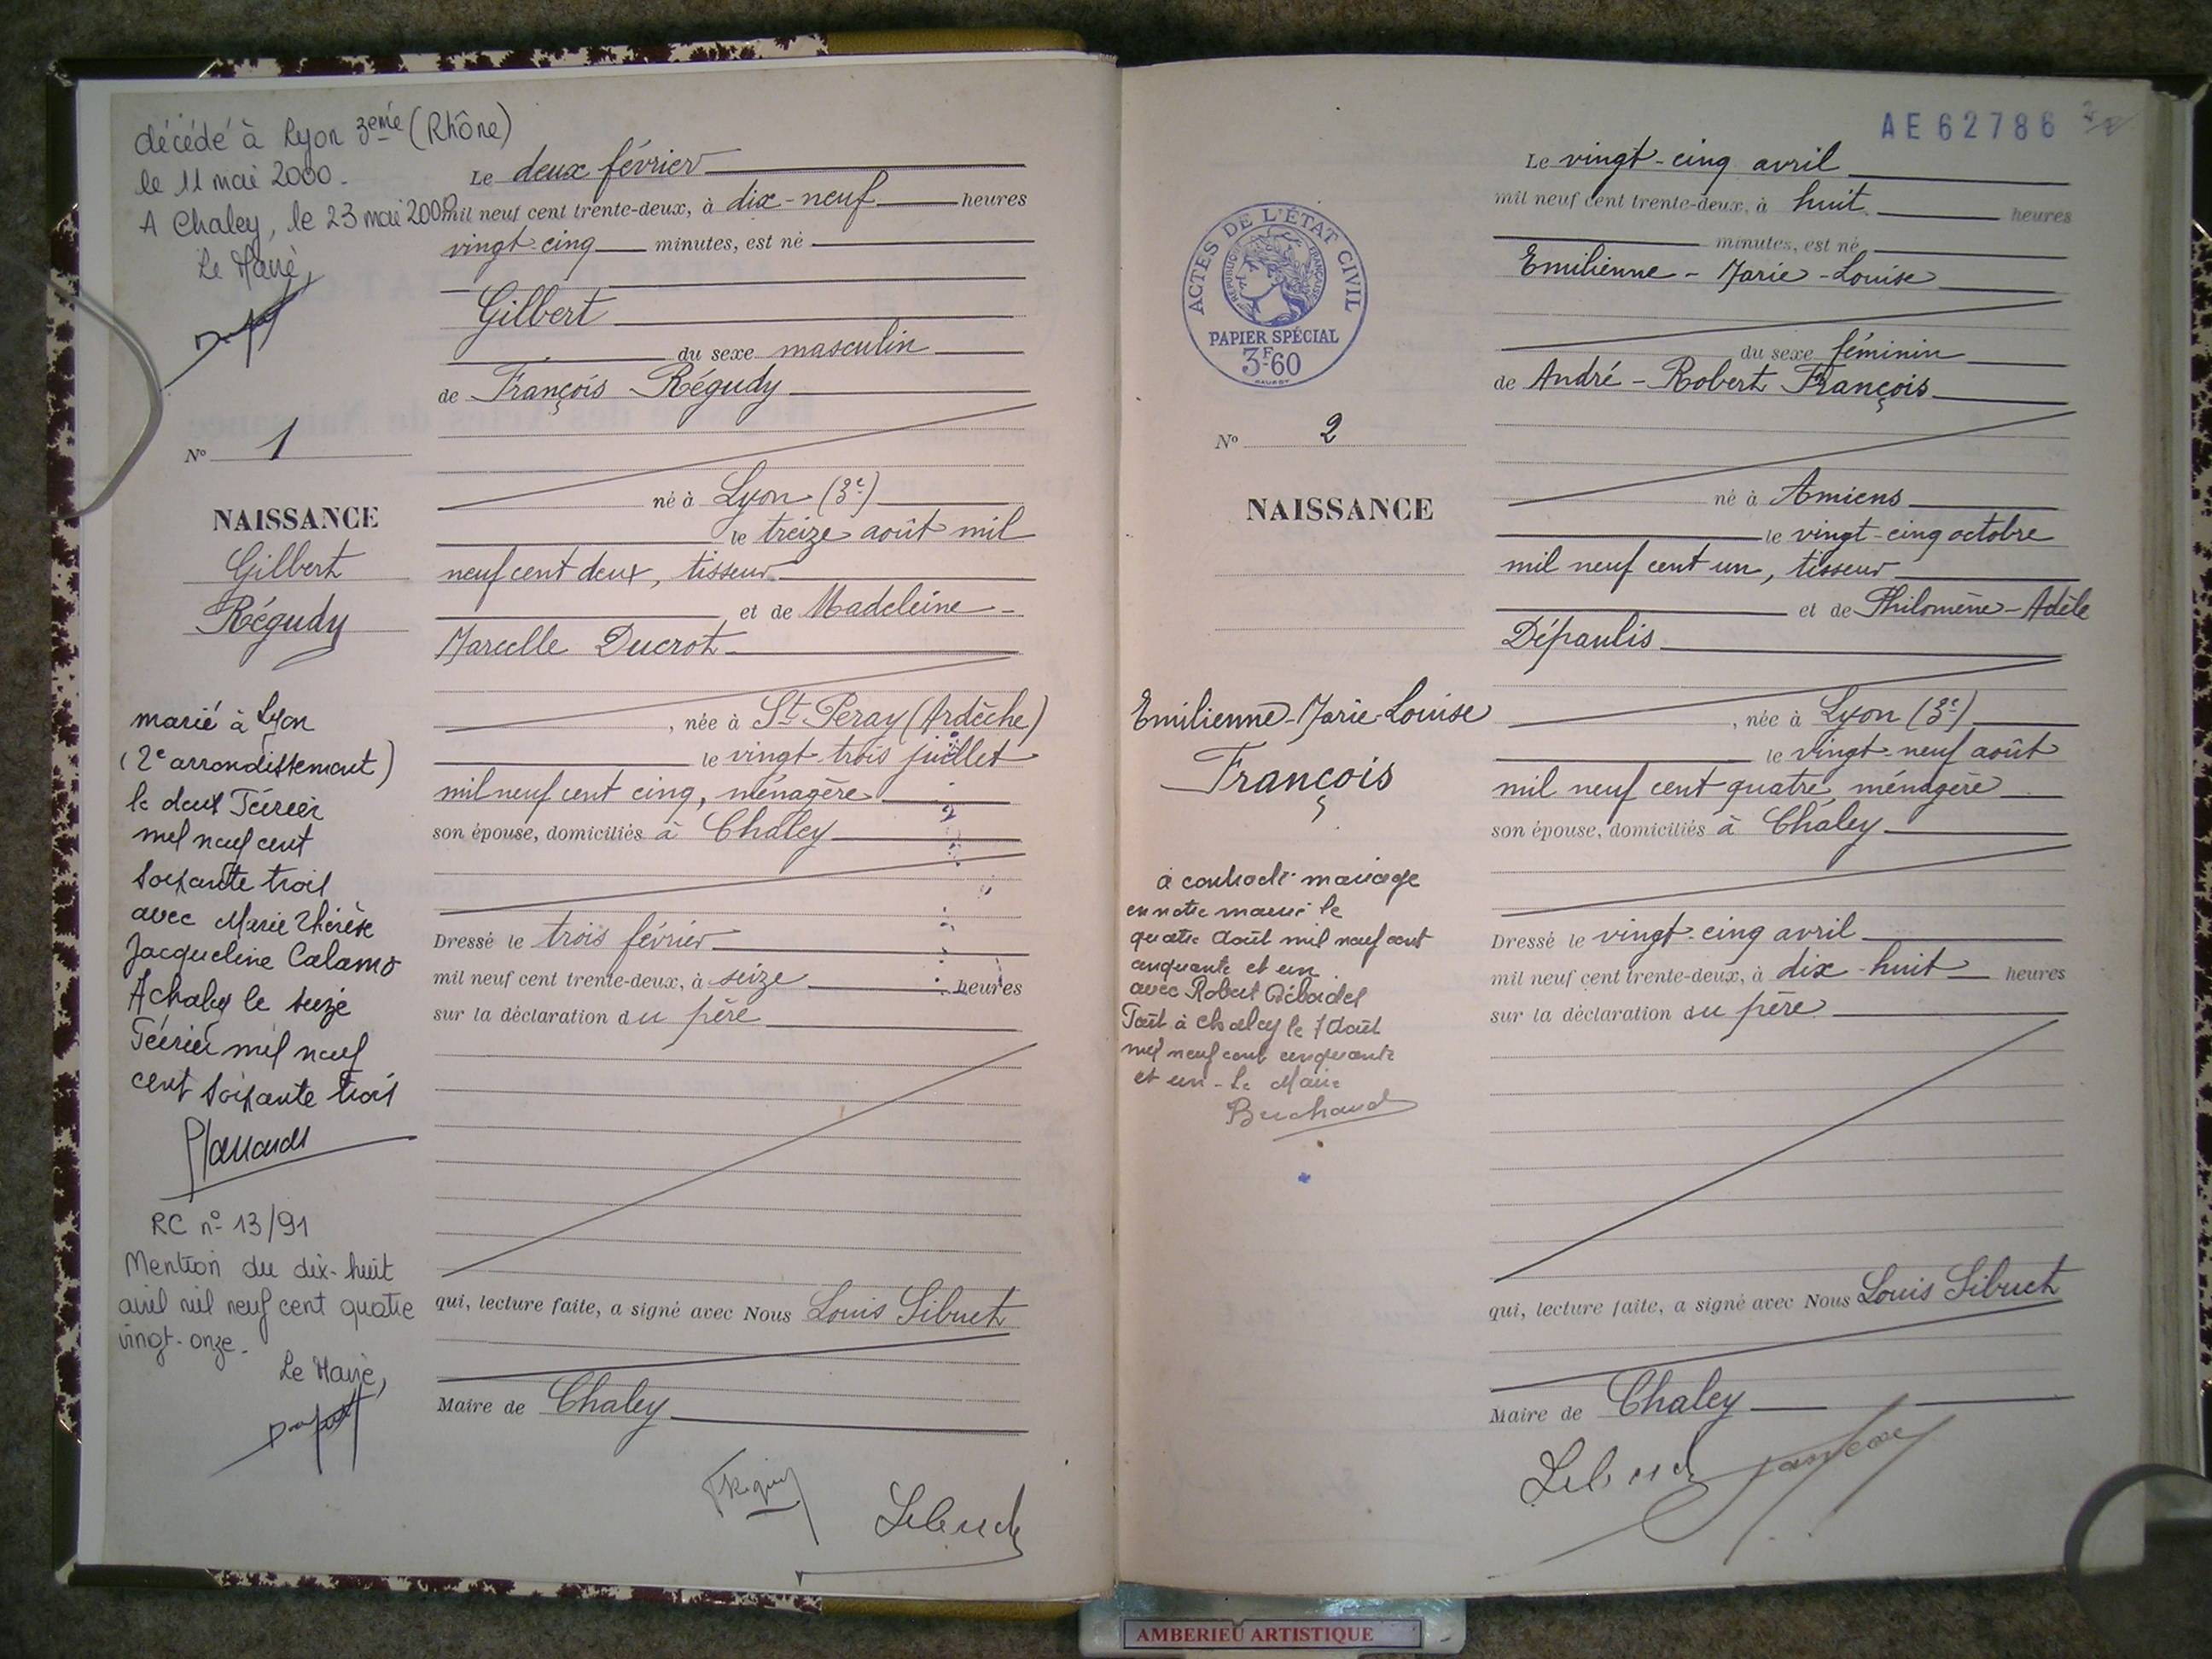 décédé à Lyon 3eme (Rhône)
le 11 mai 2000.
A Chaley, le 23 mai 2000
Le Maire,
Le deux février
mil neuf cent trente-deux, à dix-neuf heures
vingt-cinq minutes, est né
Gilbert
du sexe masculin
de François Régudy
né à Lyon (3e)
le treize août mil
neuf cent deux, tisseur
et de Madeleine-
Marcelle Ducrot
, née à St Péray (Ardèche)
le vingt-trois juillet
mil neuf cent cinq, ménagère
son épouse, domiciliés à Chaley
Dressé le trois février
mil neuf cent trente-deux, à seize heures
sur la déclaration du père
qui, lecture faite, a signé avec Nous Louis Sibuet
Maire de Chaley
No 1
NAISSANCE
Gilbert
Régudy
marié à Lyon
(2e arrondissement)
le deux Février
mil neuf cent
soixante trois
avec Marie Thérèse
Jacqueline Calamo
A chaley le seize
Février mil neuf
cent soixante trois
RC no 13/91
Mention du dix-huit
avril mil neuf cent quatre
vingt-onze.
Le Maire,
AE62786
ACTES DE L'ÉTAT CIVIL
RÉPUBLIQUE FRANÇAISE
PAPIER SPÉCIAL
3F60
No 2
NAISSANCE
Emilienne-Marie-Louise
François
a contracté mariage
en notre mairie le
quatre Août mil neuf cent
cinquante et un
avec Robert
Fait à chaley le 7 Août
mil neuf cent cinquante
et un - Le Maire
Le vingt-cinq avril
mil neuf cent trente-deux, à huit heures
minutes, est né
Emilienne-Marie-Louise
du sexe féminin
de André-Robert François
né à Amiens
le vingt-cinq octobre
mil neuf cent un, tisseur
et de Philomène-Adèle
Dépaulis
, née à Lyon (3e)
le vingt-neuf août
mil neuf cent quatre, ménagère
son épouse, domiciliés à Chaley
Dressé le vingt-cinq avril
mil neuf cent trente-deux, à dix-huit heures
sur la déclaration du père
qui, lecture faite, a signé avec Nous Louis Sibuet
Maire de Chaley
AMBERIEU ARTISTIQUE